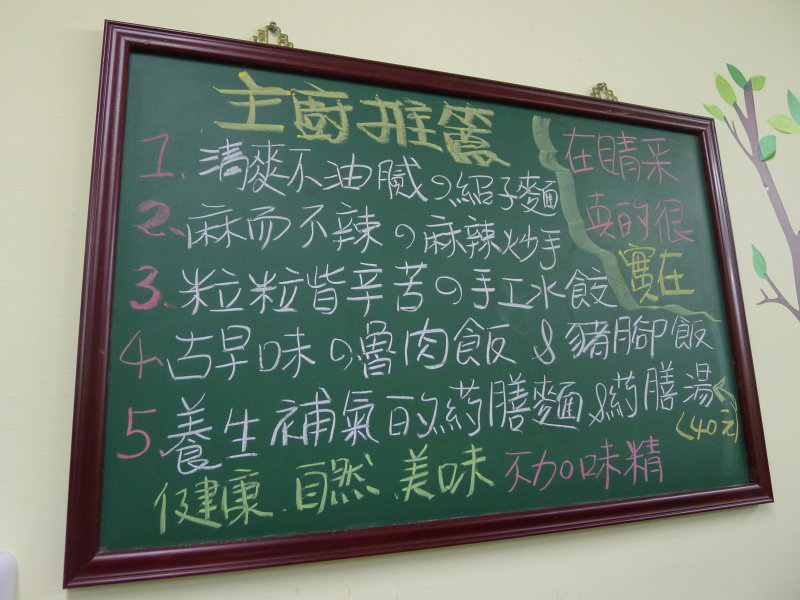 主廚推薦
1. 清爽不油膩の紹子麵
2. 麻而不辣の麻辣炒手
3. 粒粒皆辛苦の手工水餃
4. 古早味の魯肉飯 & 豬腳飯
5. 養生補氣的藥膳麵 & 藥膳湯
(40元)
健康.自然.美味 不加味精
在晴采
真的很
實在